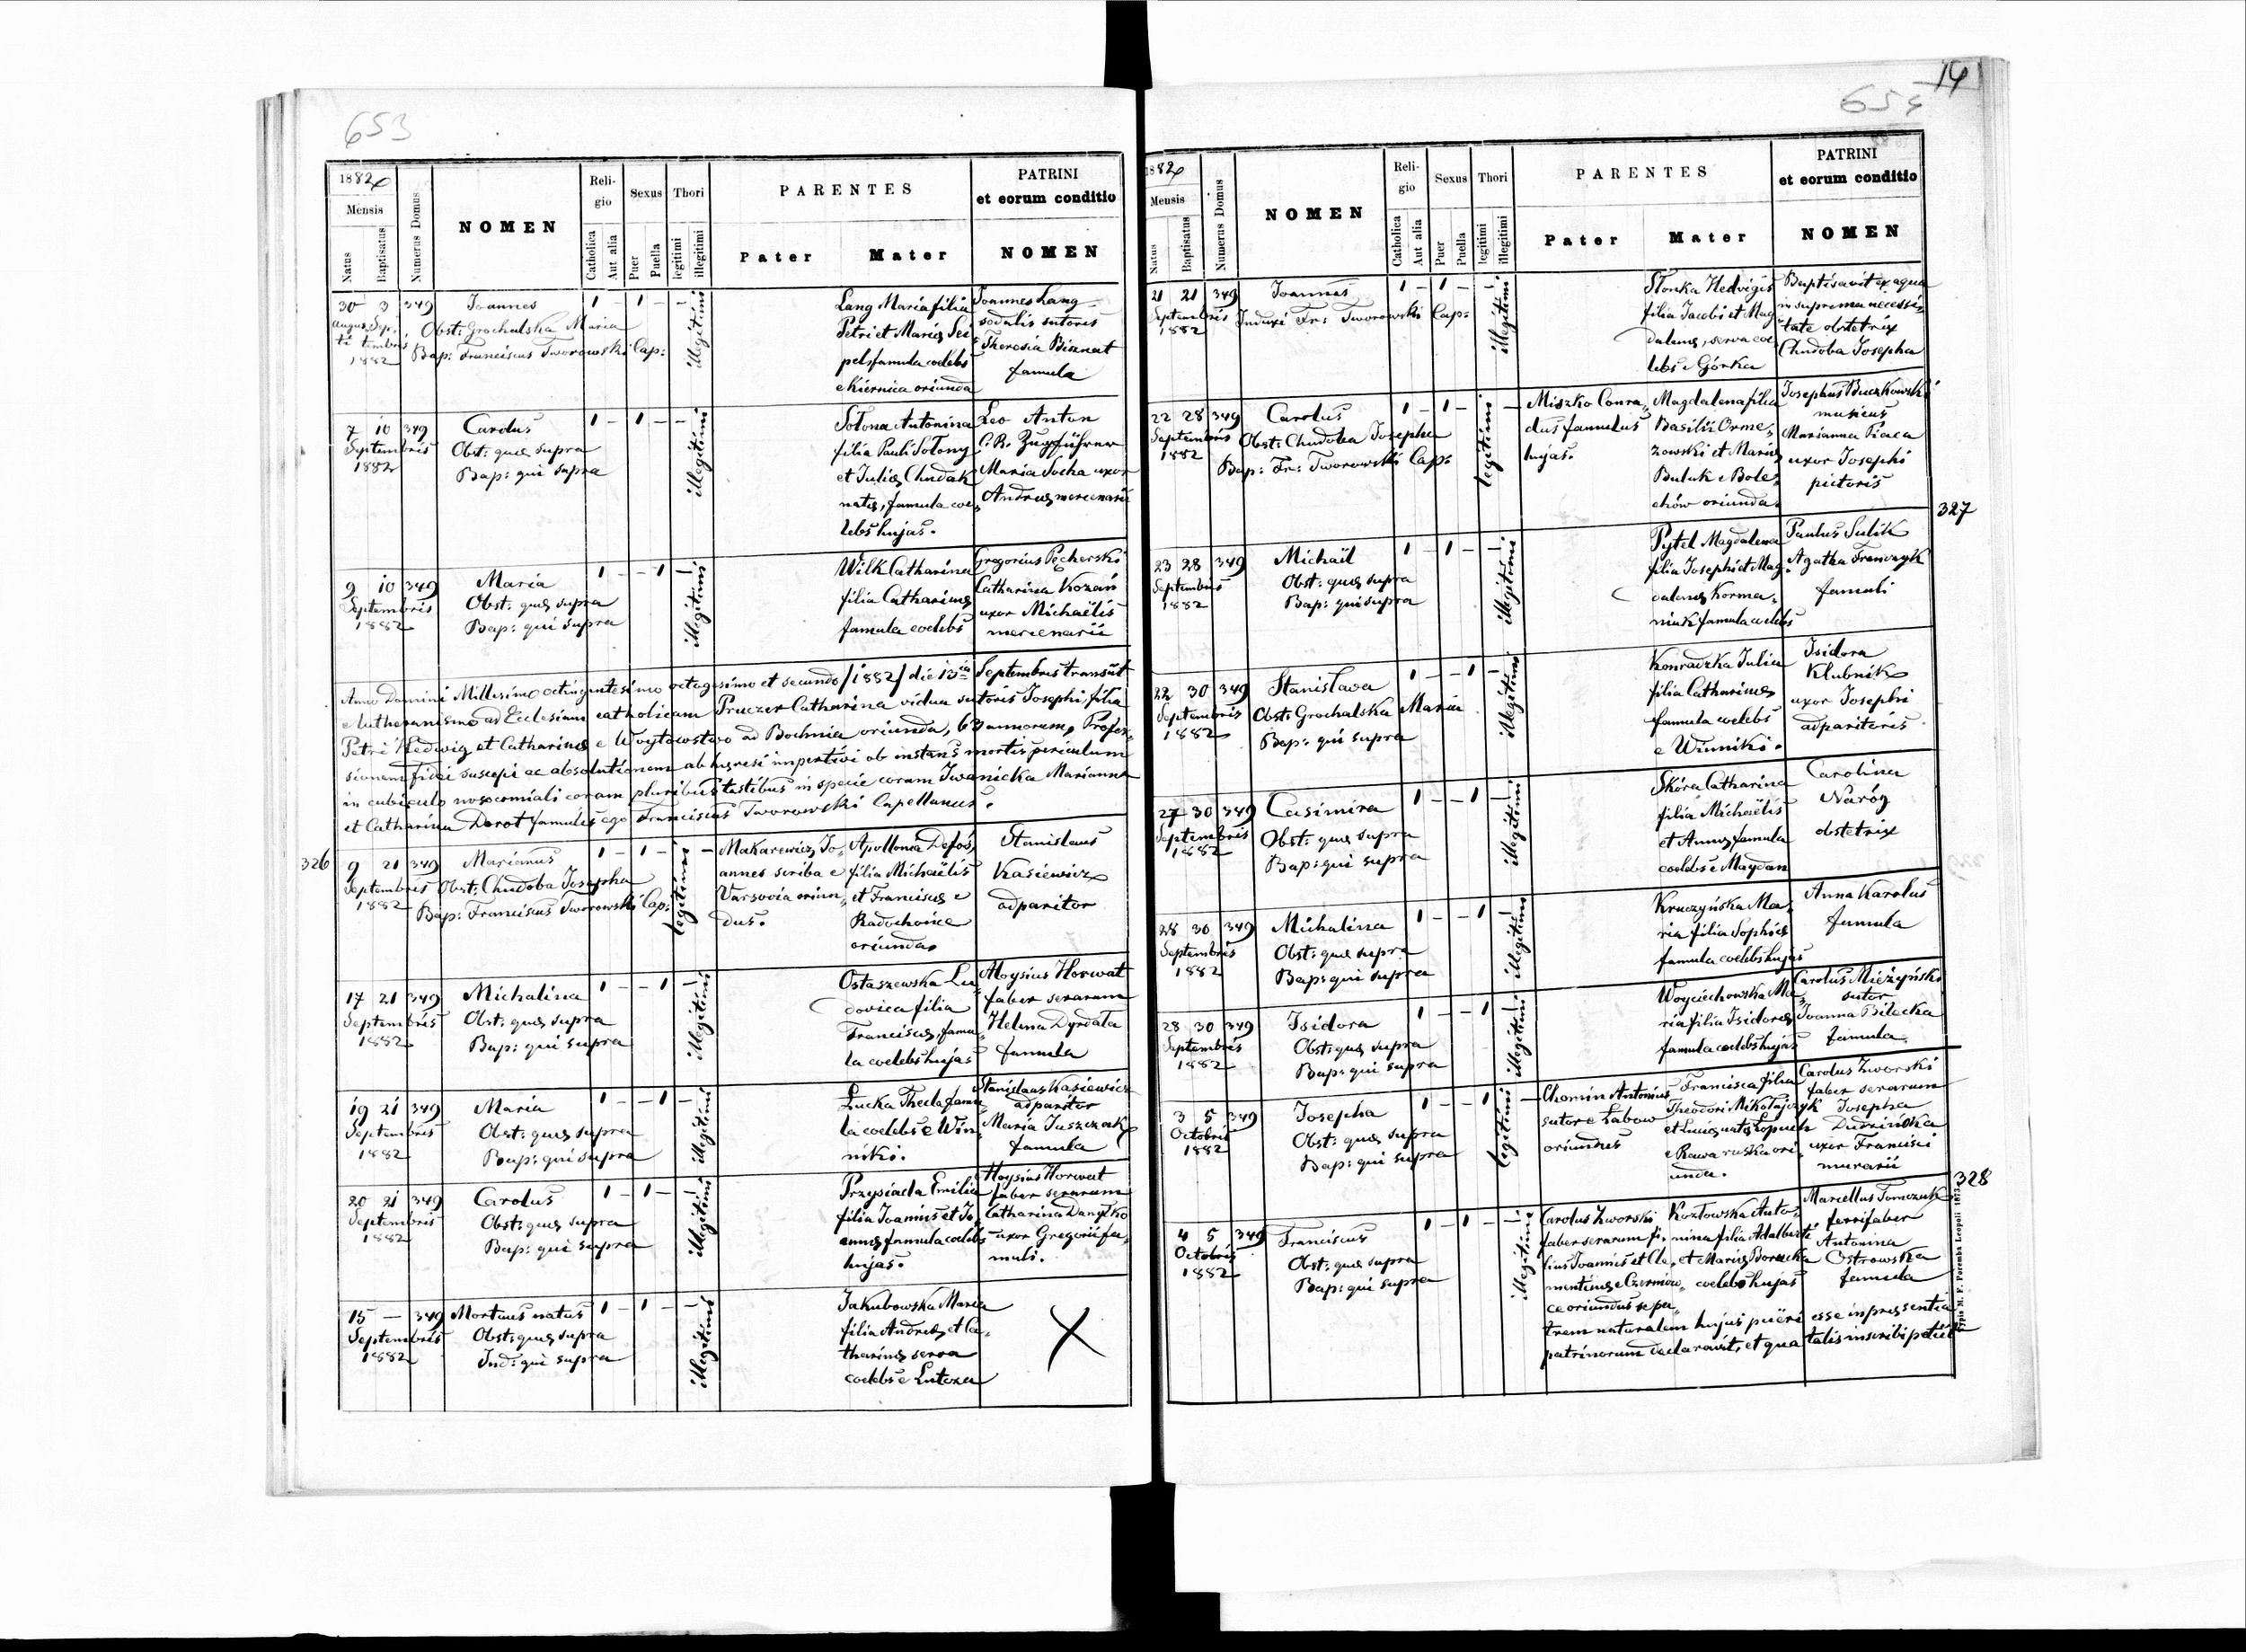 653
1882
Mensis
Natus
Baptisatus
Numerus Domus
NOMEN
Reli-
gio
Catholica
Aut alia
Sexus
Puer
Puella
Thori
legitimi
illegitimi
PARENTES
Pater
Mater
PATRINI
et eorum conditio
NOMEN
30 3 349 Joannes 1 - 1 - - 1
Augusti Septembris
1882
Obst: Grochalska Maria
Bap: Franciscus Tworowski Cap:
illegitimi
Lang Maria filia
Petri et Mariæ Sei
pel famula coelebs
e Kiernica oriunda
Joannes Lang
sodalis sutoris
Theresia Biznat
famula
7 10 349 Carolus 1 - 1 - - 1
Septembris
1882
Obst: quæ supra
Bap: qui supra
illegitimi
Sołona Antonina
filia Pauli Sołony
et Juliæ Chudak
natæ, famula coe,
lebs hujas.
Leo Anton
C. R. Zugführer
Maria Socha uxor
Andreæ mercenarii
9 10 349 Maria 1 - - 1 - 1
Septembris
1882
Obst: quæ supra
Bap: qui supra
illegitimi
Wilk Catharina
filia Catharinæ
famula coelebs
Gregorius Pecherski
Catharina Kozań
uxor Michaëlis
mercenarii
Anno Domini Millesimo octingentesimo octogesimo et secundo /1882/ die 13ia Septembris transiit
e Lutheranismo ad Ecclesiam catholicam Pruczer Catharina vidua sutoris Josephi filia
Petri Hedwig et Catharinæ e Woytowstwo ad Bochnia oriunda, 63 annorum, Profes,
sionem fidei suscepi ac absolutionem ab hæresi impertivi ob instans mortis periculum
in cubiculo nosocomiali coram pluribus testibus in specie coram Iwanicka Marianna
et Catharina Dorot famulis ego Franciscus Tworowski Capellanus.
326
9 21 349 Marianus 1 - 1 - 1 -
Septembris
1882
Obst: Chudoba Josepha
Bap: Franciscus Tworowski Cap:
legitimi
Makarewicz Jo,
annes scriba e
Varsovia oriun,
dus.
Apollonia Defoś
filia Michaëlis
et Franciscæ e
Radochońce
oriunda
Stanislaus
Kasiewicz
adparitor
17 21 349 Michalina 1 - - 1 - 1
Septembris
1882
Obst: quæ supra
Bap: qui supra
illegitimi
Ostaszewska Lu
dovica filia
Franciscæ, famu,
la coelebs hujas
Aloysius Horwat
faber serarum
Helena Dyrdała
famula
19 21 349 Maria 1 - - 1 - 1
Septembris
1882
Obst: quæ supra
Bap: qui supra
illegitimi
Łucka Thecla famu
la coelebs e Win,
niki.
Stanislaus Kasiewicz
adparitor
Maria Juszczak
famula
20 21 349 Carolus 1 - 1 - - 1
Septembris
1882
Obst: quæ supra
Bap: qui supra
illegitimi
Przysiada Emilia
filia Joannis et Jo,
annæ famula coelebs
hujas.
Aloysius Horwat
faber serarum
Catharina Danyłko
uxor Gregorii fa,
muli.
15 - 349 Mortuus natus 1 - 1 - - 1
Septembris
1882
Obst: quæ supra
Ind: qui supra
illegitimi
Jakubowska Maria
filia Andreæ et Ca,
tharinæ serva
coelebs e Lutoza
14
654
1882
Mensis
Natus
Baptisatus
Numerus Domus
NOMEN
Reli-
gio
Catholica
Aut alia
Sexus
Puer
Puella
Thori
legitimi
illegitimi
PARENTES
Pater
Mater
PATRINI
et eorum conditio
NOMEN
21 21 349 Joannes 1 - 1 - - 1
Septembris
1882
Induxi Fr: Tworowski Cap:
illegitimi
Słonka Hedvigis
filia Jacobi et Mag
dalenæ, serva coe
lebs e Górka
Baptisavit ex aqua
in suprema necessi,
tate obstetrix
Chudoba Josepha
22 28 349 Carolus 1 - 1 - 1 -
Septembris
1882
Obst: Chudoba Josepha
Bap: Fr: Tworowski Cap:
legitimi
Miszko Conra,
dus famulus
hujas.
Magdalena filia
Basilii Orme,
zowski et Mariæ
Buluk e Bole,
chów oriunda.
Josephus Buczkowski
musicus
Marianna Piaca
uxor Josephi
pictoris
327
23 28 349 Michaël 1 - 1 - - 1
Septembris
1882
Obst: quæ supra
Bap: qui supra
illegitimi
Pytel Magdalena
filia Josephi et Mag,
dalenæ Korma,
niuk famula coelebs
Paulus Sulik
Agatha Franczyk
famuli
22 30 349 Stanisława 1 - - 1 - 1
Septembris
1882
Obst: Grochalska Maria
Bap: qui supra
illegitimi
Konradzka Julia
filia Catharinæ
famula coelebs
e Winniki.
Isidora
Klubnik
uxor Josephi
adparitoris
27 30 349 Casimira 1 - - 1 - 1
Septembris
1882
Obst: quæ supra
Bap: qui supra
illegitimi
Skóra Catharina
filia Michaëlis
et Annæ famula
coelebs e Maydan
Carolina
Naróg
obstetrix
28 30 349 Michalina 1 - - 1 - 1
Septembris
1882
Obst: quæ supra
Bap: qui supra
illegitimi
Kruczyńska Ma,
ria filia Sophiæ
famula coelebs hujas
Anna Karolus
famula
28 30 349 Isidora 1 - - 1 - 1
Septembris
1882
Obst: quæ supra
Bap: qui supra
illegitimi
Woyciechowska Ma,
ria filia Isidoræ
famula coelebs hujas
Carolus Mieżyński
sutor
Joanna Bilecka
famula
3 5 349 Josepha 1 - - 1 1 -
Octobris
1882
Obst: quæ supra
Bap: qui supra
legitimi
Chomin Antonius
sutor e Łabow
oriundus
Francisca filia
Theodori Mikołajczyk
et Luciæ natæ Łopuch
e Rawa ruska ori,
unda.
Carolus Zworski
faber serarum
Josepha
Duzińska
uxor Francisci
murarii
328
4 5 349 Franciscus 1 - 1 - - 1
Octobris
1882
Obst: quæ supra
Bap: qui supra
illegitimi
Carolus Zworski
faber serarum fi,
lius Joannis et Cle,
mentinæ e Czerniow,
ce oriundus se pa,
Kozłowska Anto,
nina filia Adalberti
et Mariæ Borucka
coelebs hujas
Marcellus Tomczuk
ferrifaber
Antonina
Ostrowska
famula
trem naturalem hujus pueri esse in præsentia
patrinorum declaravit, et qua talis inscribi petiit
Typis M. F. Poremba Leopoli 1873